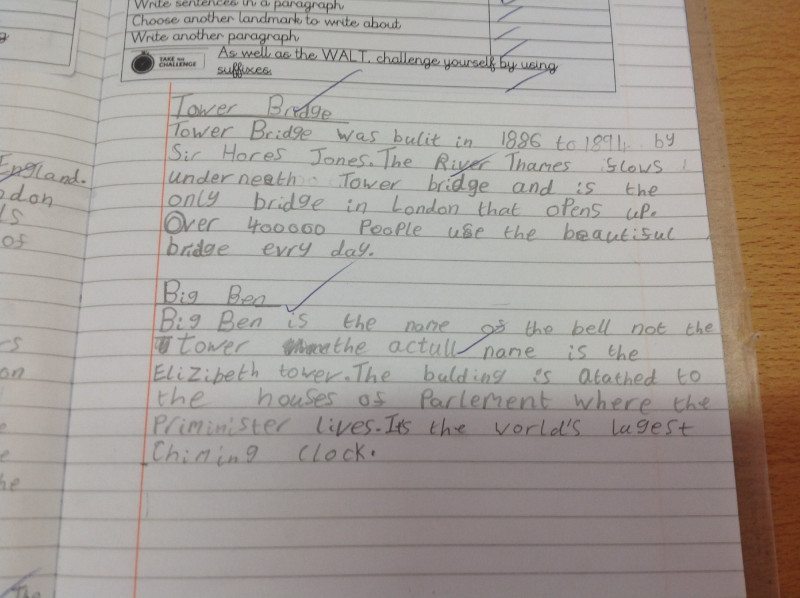 Write sentences in a paragraph
Choose another landmark to write about
Write another paragraph
TAKE THE CHALLENGE
As well as the WALT, challenge yourself by using
suffixes.
Tower Bridge
Tower Bridge was bulit in 1886 to 1894 by
Sir Hores Jones. The River Thames flows
underneeth Tower bridge and is the
only bridge in London that opens up.
Over 400000 People use the beautiful
bridge evry day.
Big Ben
Big Ben is the name of the bell not the
tower the actull name is the
Elizibeth tower. The bulding is atathed to
the houses of Parlement where the
Priminister lives. Its the world's lagest
Chiming clock.
England.
of
on